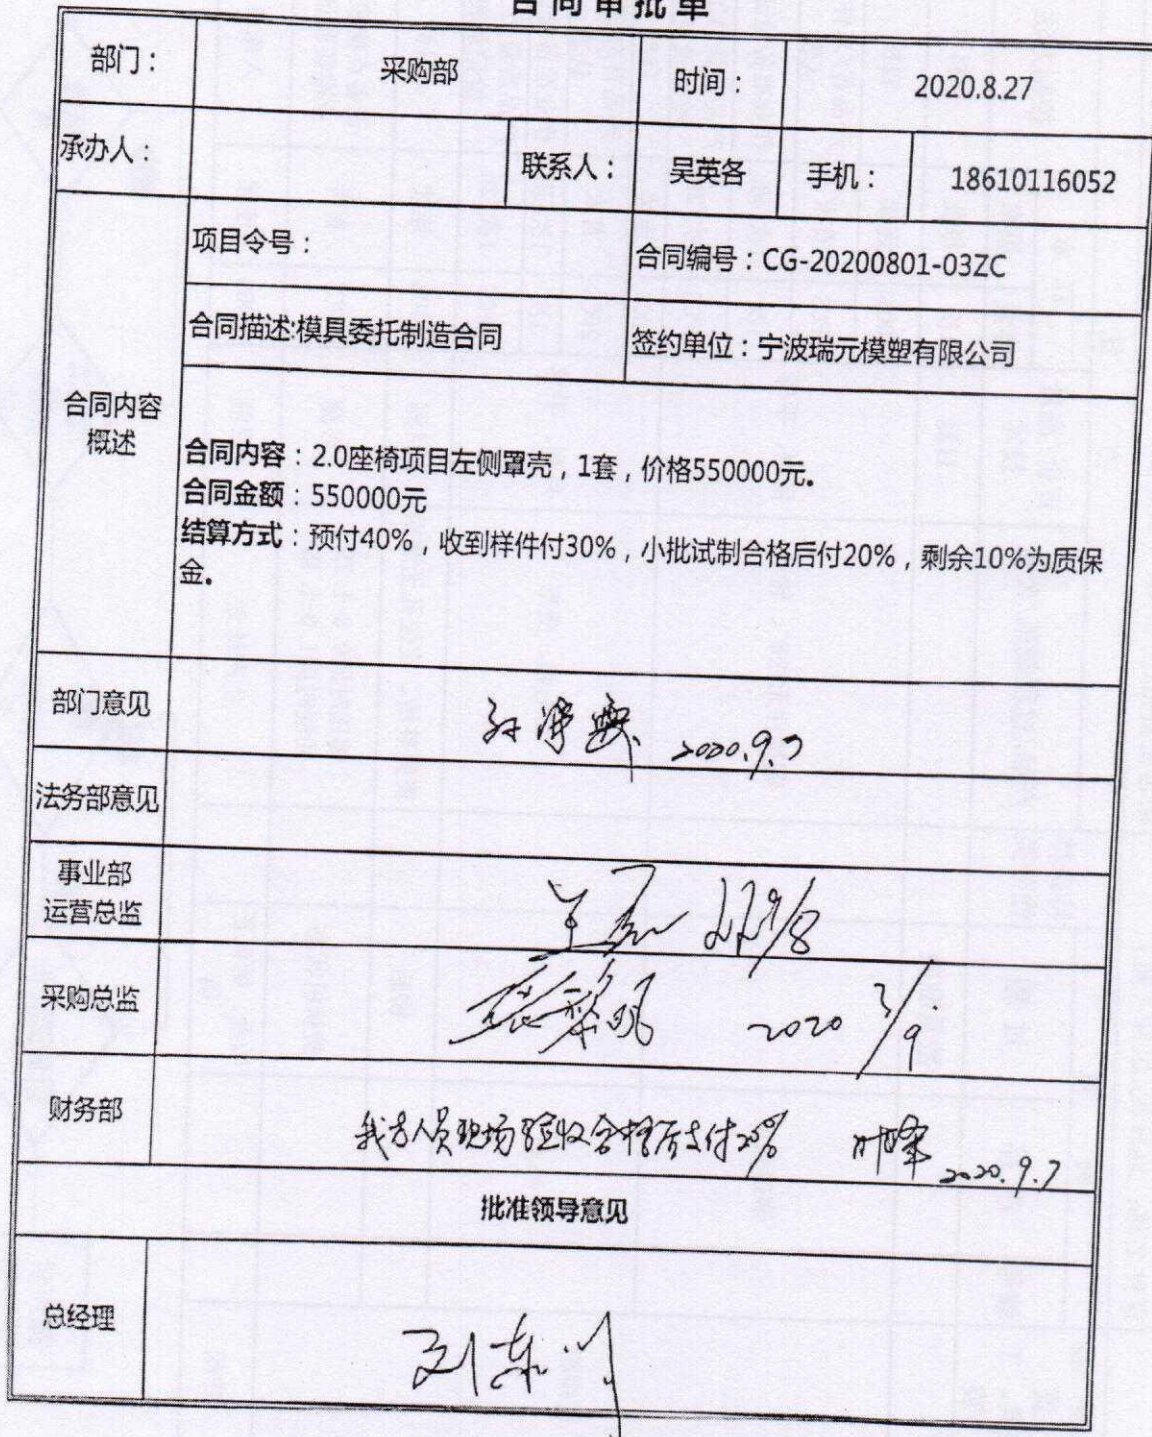 合同审批单
部门： 采购部 时间： 2020.8.27
承办人： 联系人： 吴英各 手机： 18610116052
项目令号： 合同编号：CG-20200801-03ZC
合同描述:模具委托制造合同 签约单位：宁波瑞元模塑有限公司
合同内容
概述
合同内容：2.0座椅项目左侧罩壳，1套，价格550000元。
合同金额：550000元
结算方式：预付40%，收到样件付30%，小批试制合格后付20%，剩余10%为质保
金。
部门意见 2020.9.7
法务部意见
事业部
运营总监
采购总监 2020
财务部 我方人员现场验收合格后支付20% 2020.9.7
批准领导意见
总经理 刘东川